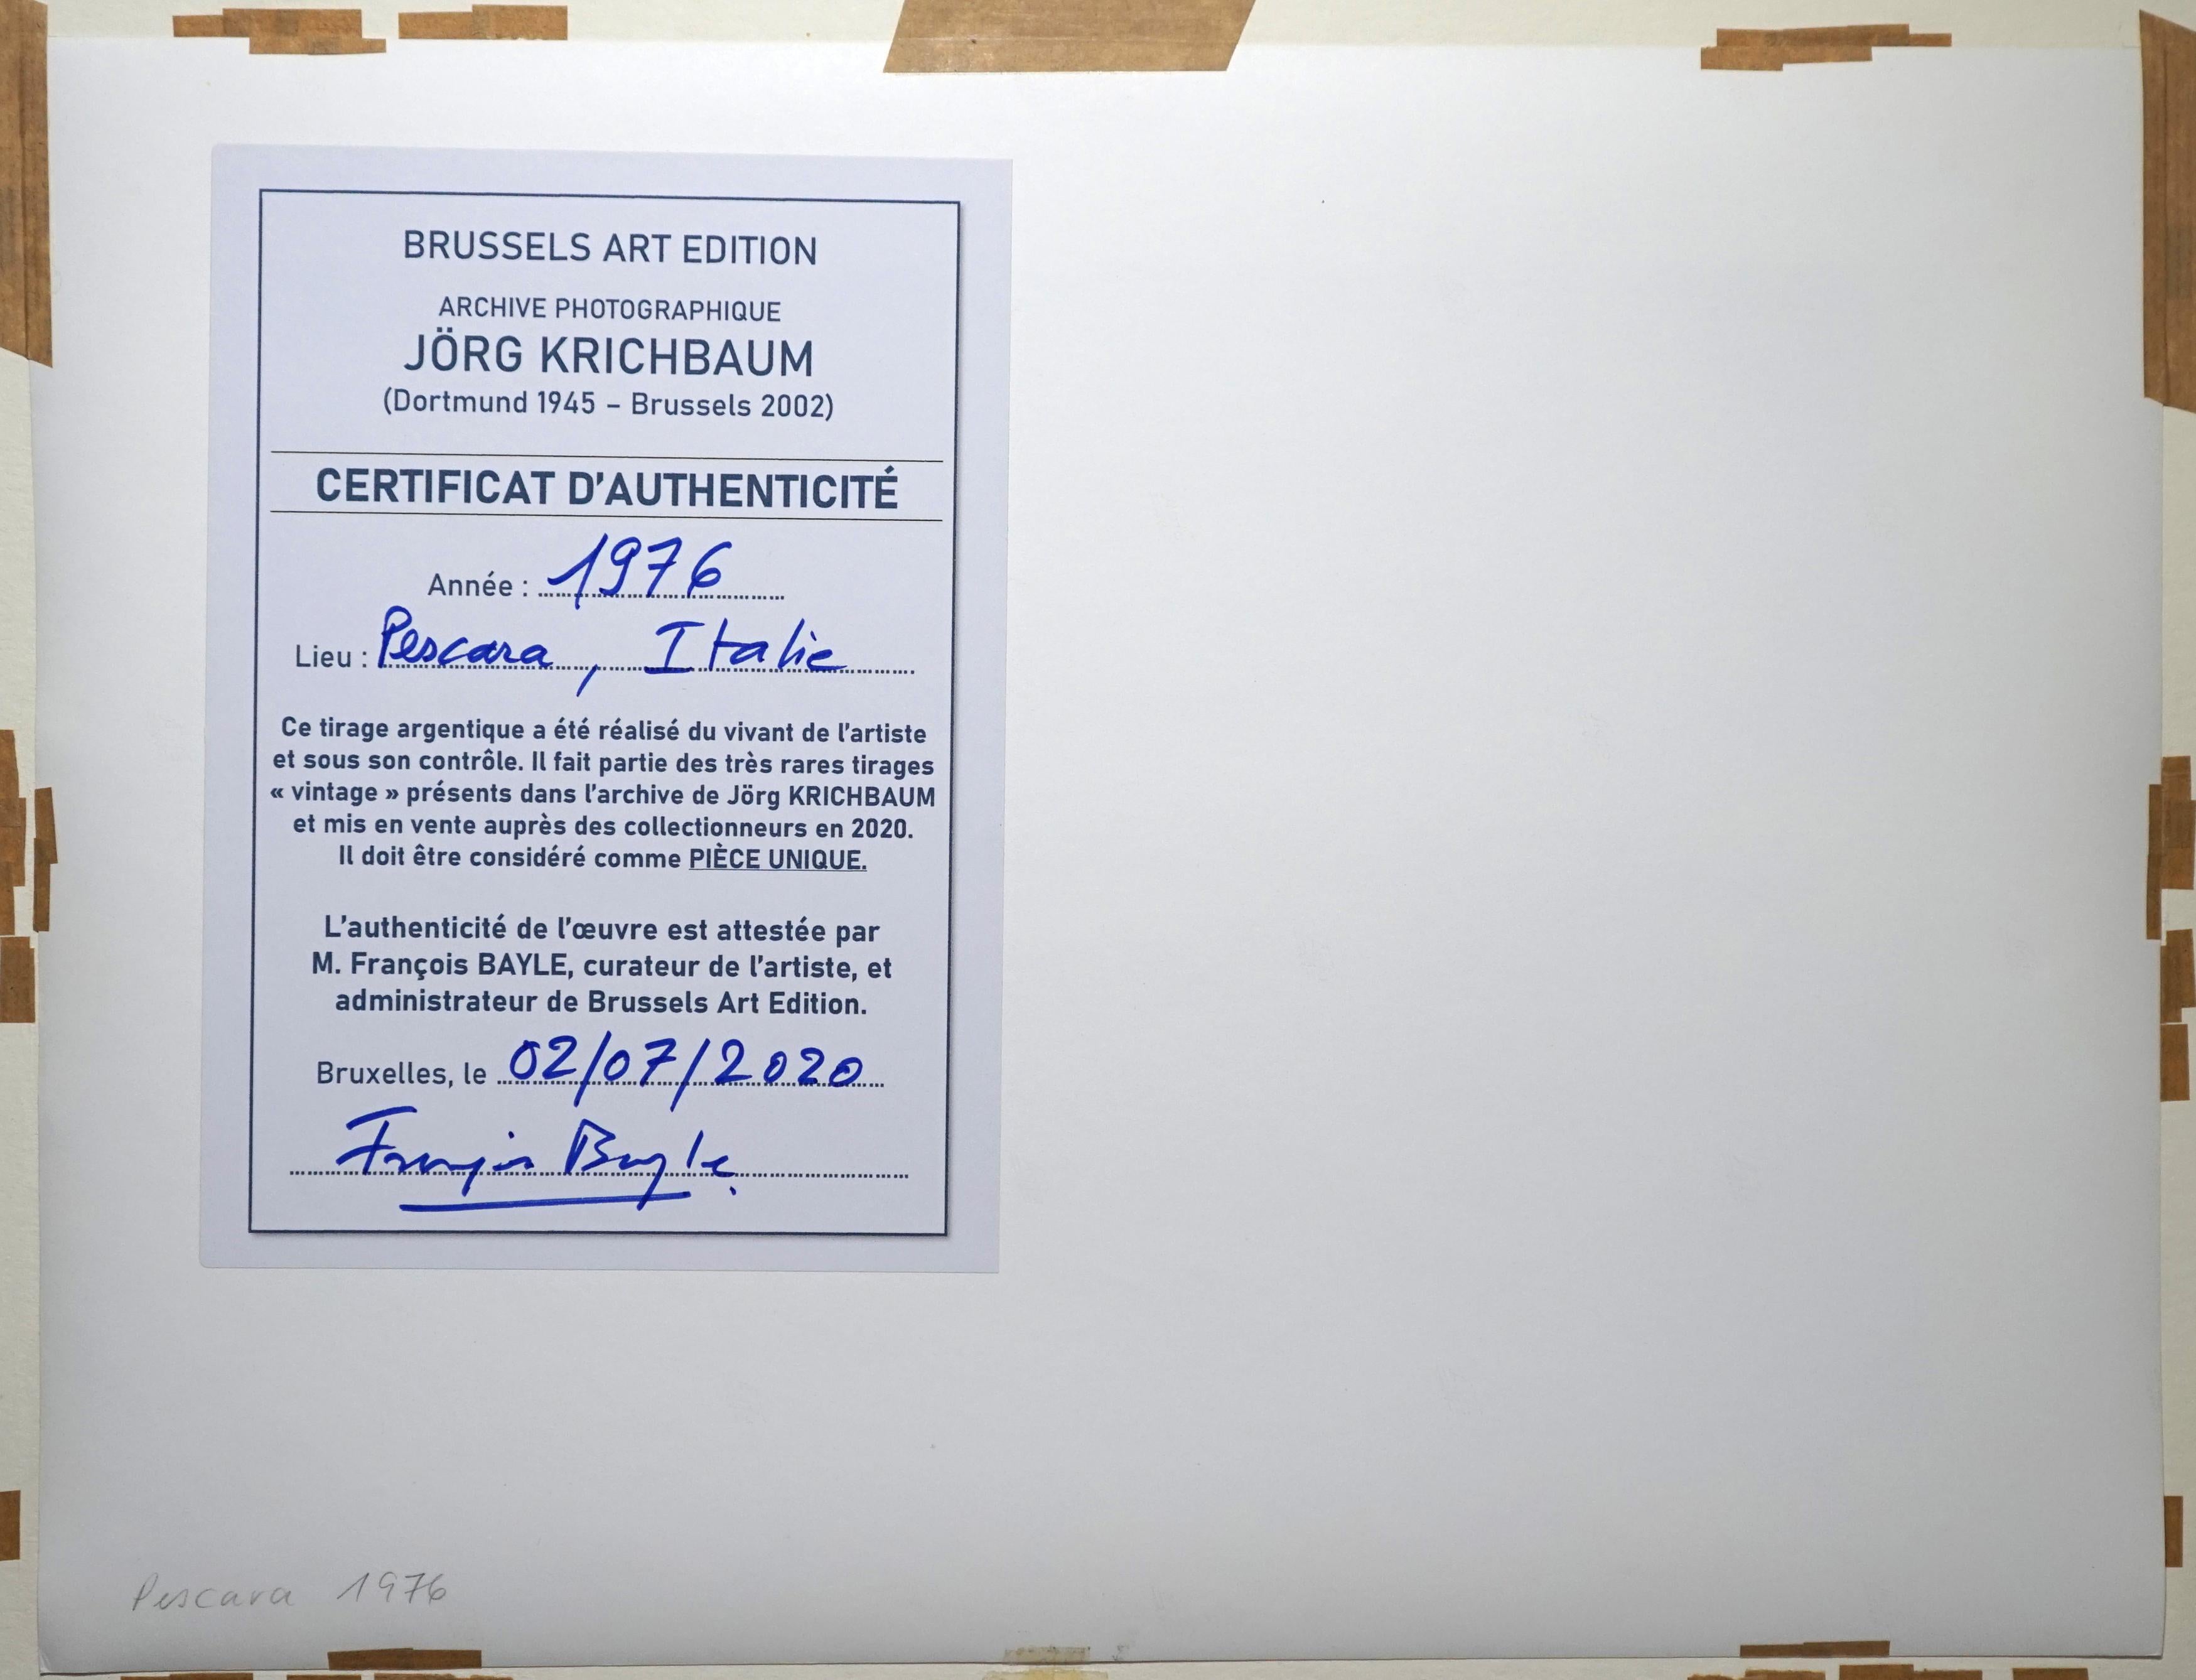 BRUSSELS ART EDITION
ARCHIVE PHOTOGRAPHIQUE
JÖRG KRICHBAUM
(Dortmund 1945 – Brussels 2002)
CERTIFICAT D'AUTHENTICITÉ
Année : 1976
Lieu : Pescara, Italie
Ce tirage argentique a été réalisé du vivant de l'artiste
et sous son contrôle. Il fait partie des très rares tirages
« vintage » présents dans l'archive de Jörg KRICHBAUM
et mis en vente auprès des collectionneurs en 2020.
Il doit être considéré comme PIÈCE UNIQUE.
L'authenticité de l'œuvre est attestée par
M. François BAYLE, curateur de l'artiste, et
administrateur de Brussels Art Edition.
Bruxelles, le 02/07/2020
François Bayle
Pescara 1976